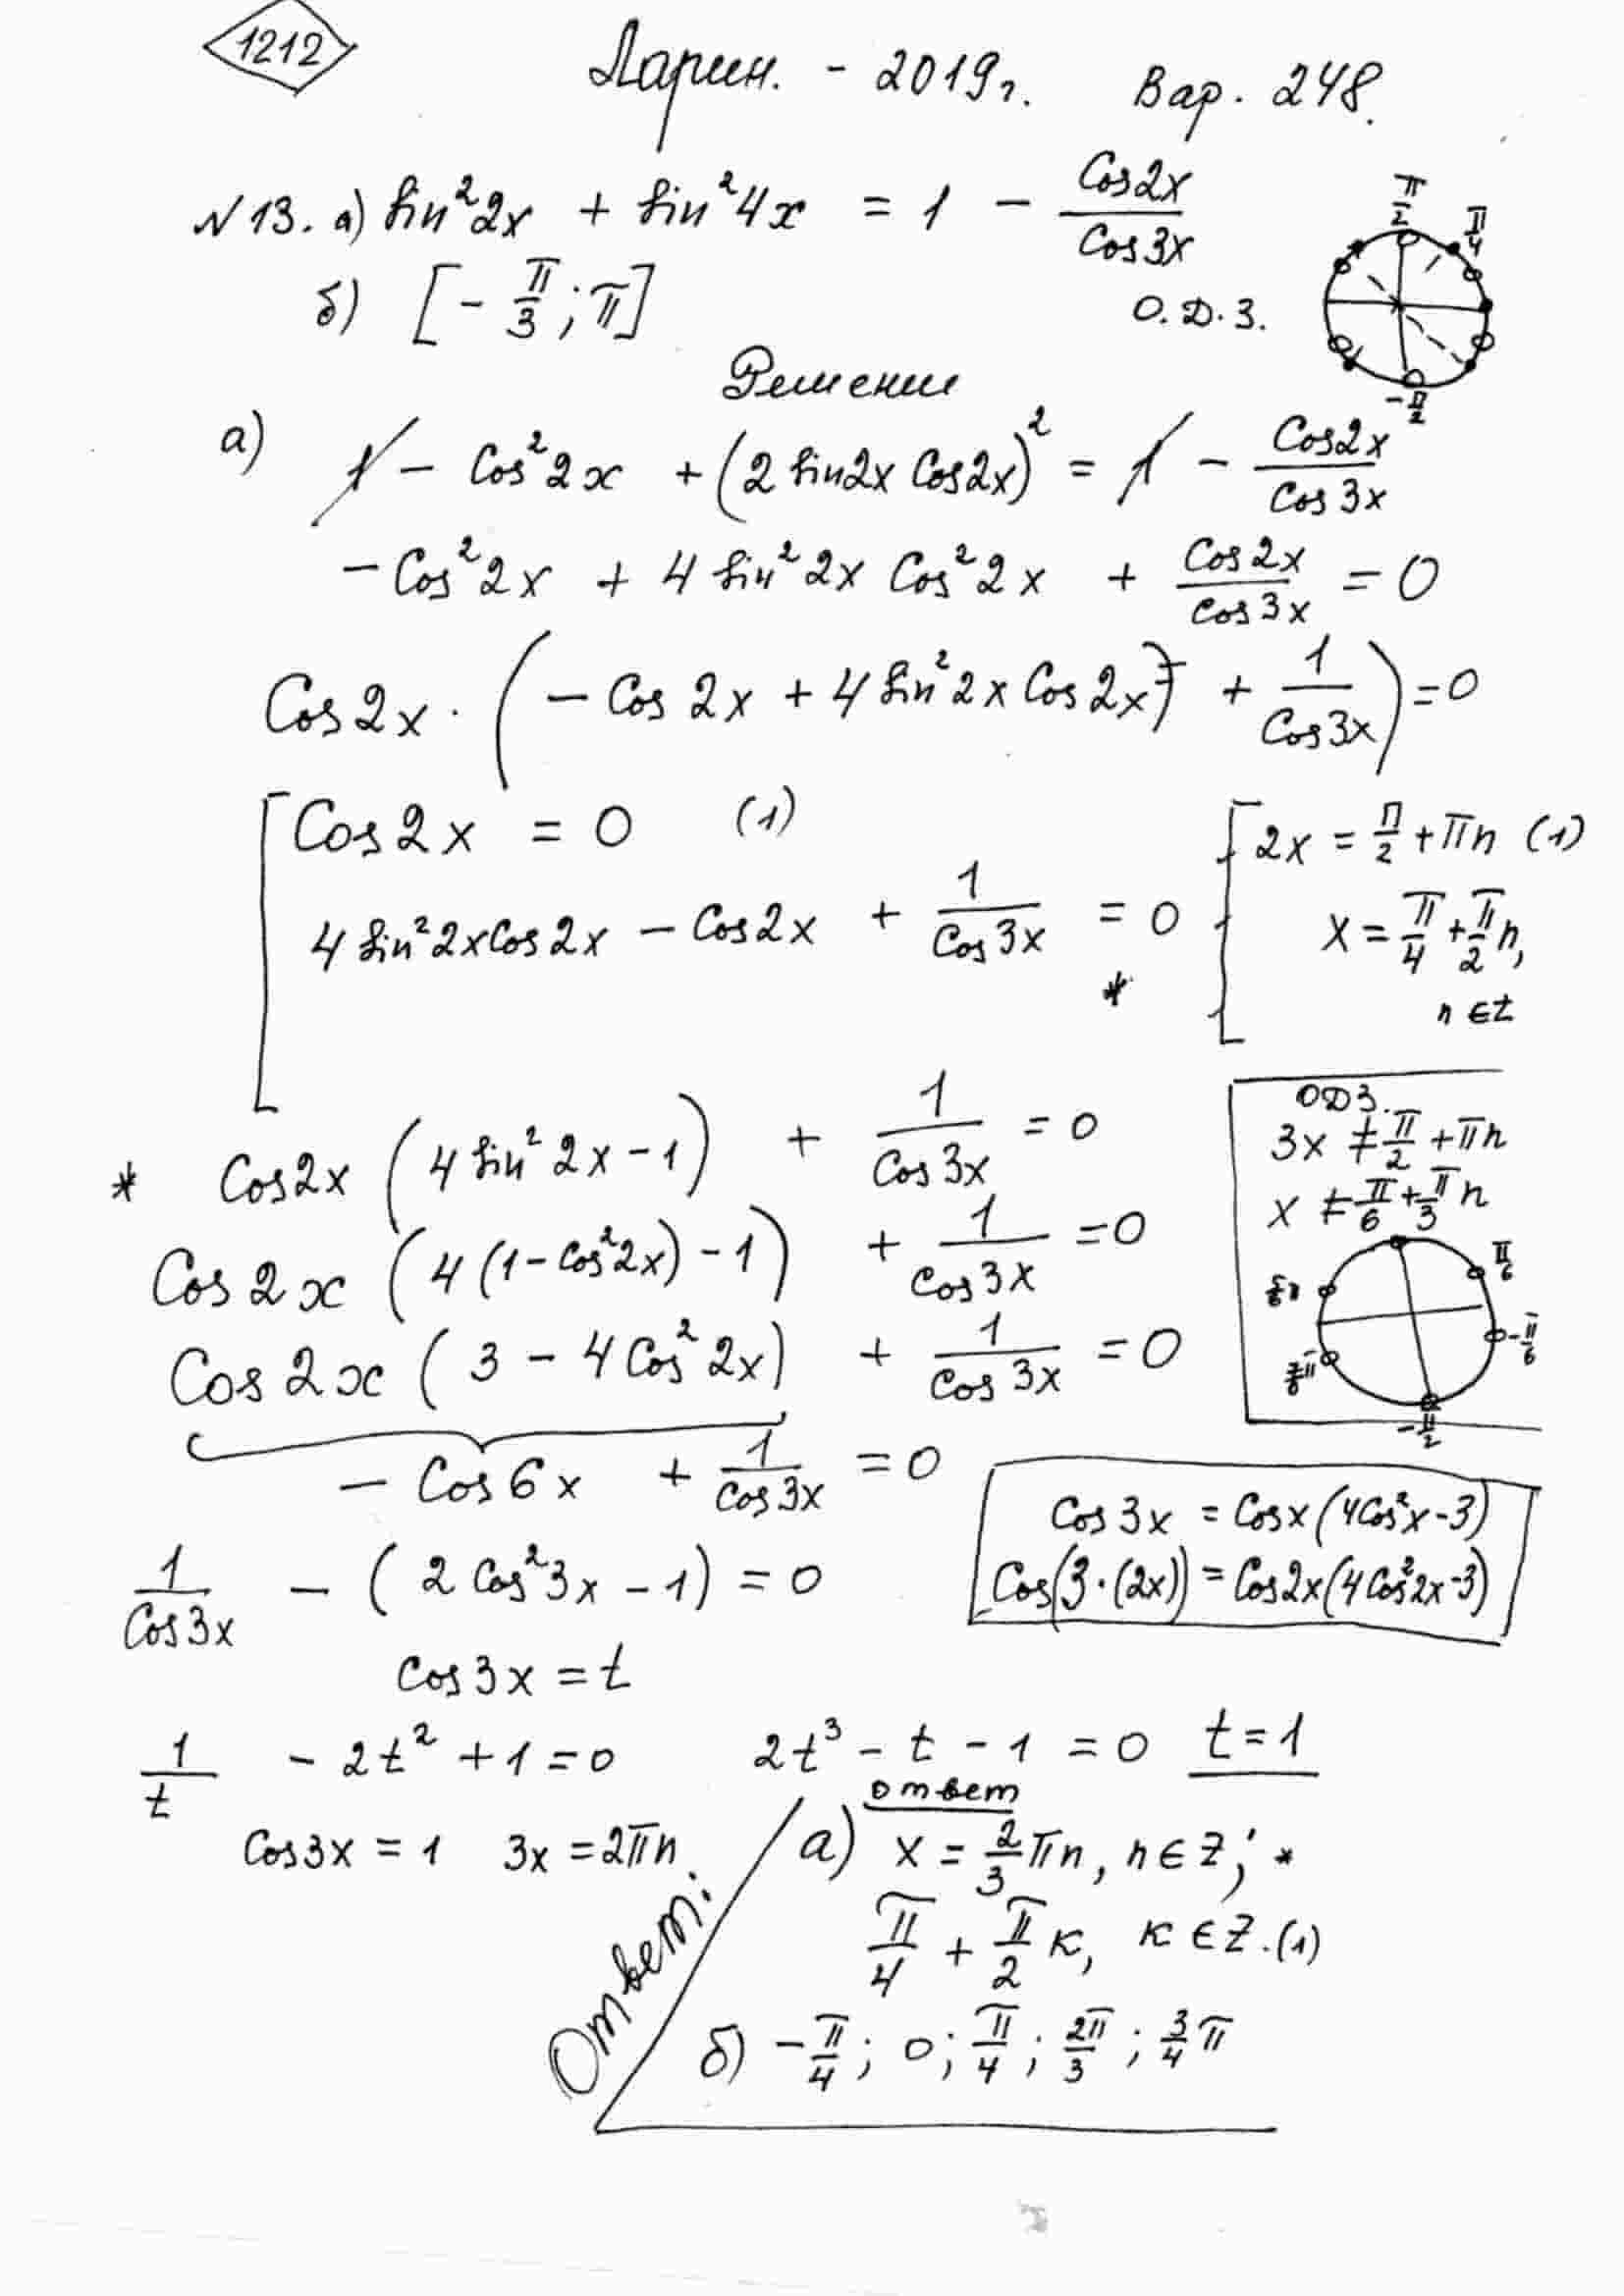 1212
Ларин. - 2019г. Вар. 248.
N13. а) sin²2x + sin²4x = 1 - Cos2x/Cos3x
б) [-π/3; π]
О.Д.З.
π/2
π/4
-π/2
Решение
а) 1 - Cos²2x + (2 sin2x Cos2x)² = 1 - Cos2x/Cos3x
-Cos²2x + 4 sin²2x Cos²2x + Cos2x/Cos3x = 0
Cos2x · (-Cos2x + 4 sin²2x Cos2x + 1/Cos3x) = 0
Cos2x = 0 (1)
4 sin²2x Cos2x - Cos2x + 1/Cos3x = 0 *
2x = π/2 + πn (1)
x = π/4 + π/2 n,
n ∈ Z
* Cos2x (4 sin²2x - 1) + 1/Cos3x = 0
Cos2x (4(1-cos²2x) - 1) + 1/Cos3x = 0
Cos2x (3 - 4Cos²2x) + 1/Cos3x = 0
ОДЗ.
3x ≠ π/2 + πn
x ≠ π/6 + π/3 n
π/6
5/6 π
-π/6
7/6 π
-π/2
- Cos6x + 1/Cos3x = 0
Cos3x = Cosx(4Cos²x-3)
Cos(3·(2x)) = Cos2x(4Cos²2x-3)
1/Cos3x - (2Cos²3x - 1) = 0
Cos3x = t
1/t - 2t² + 1 = 0 2t³ - t - 1 = 0 t = 1
ответ
Cos3x = 1 3x = 2πn.
Ответ:
а) x = 2/3 πn, n ∈ Z; *
π/4 + π/2 к, к ∈ Z. (1)
б) -π/4; 0; π/4; 2π/3; 3/4 π